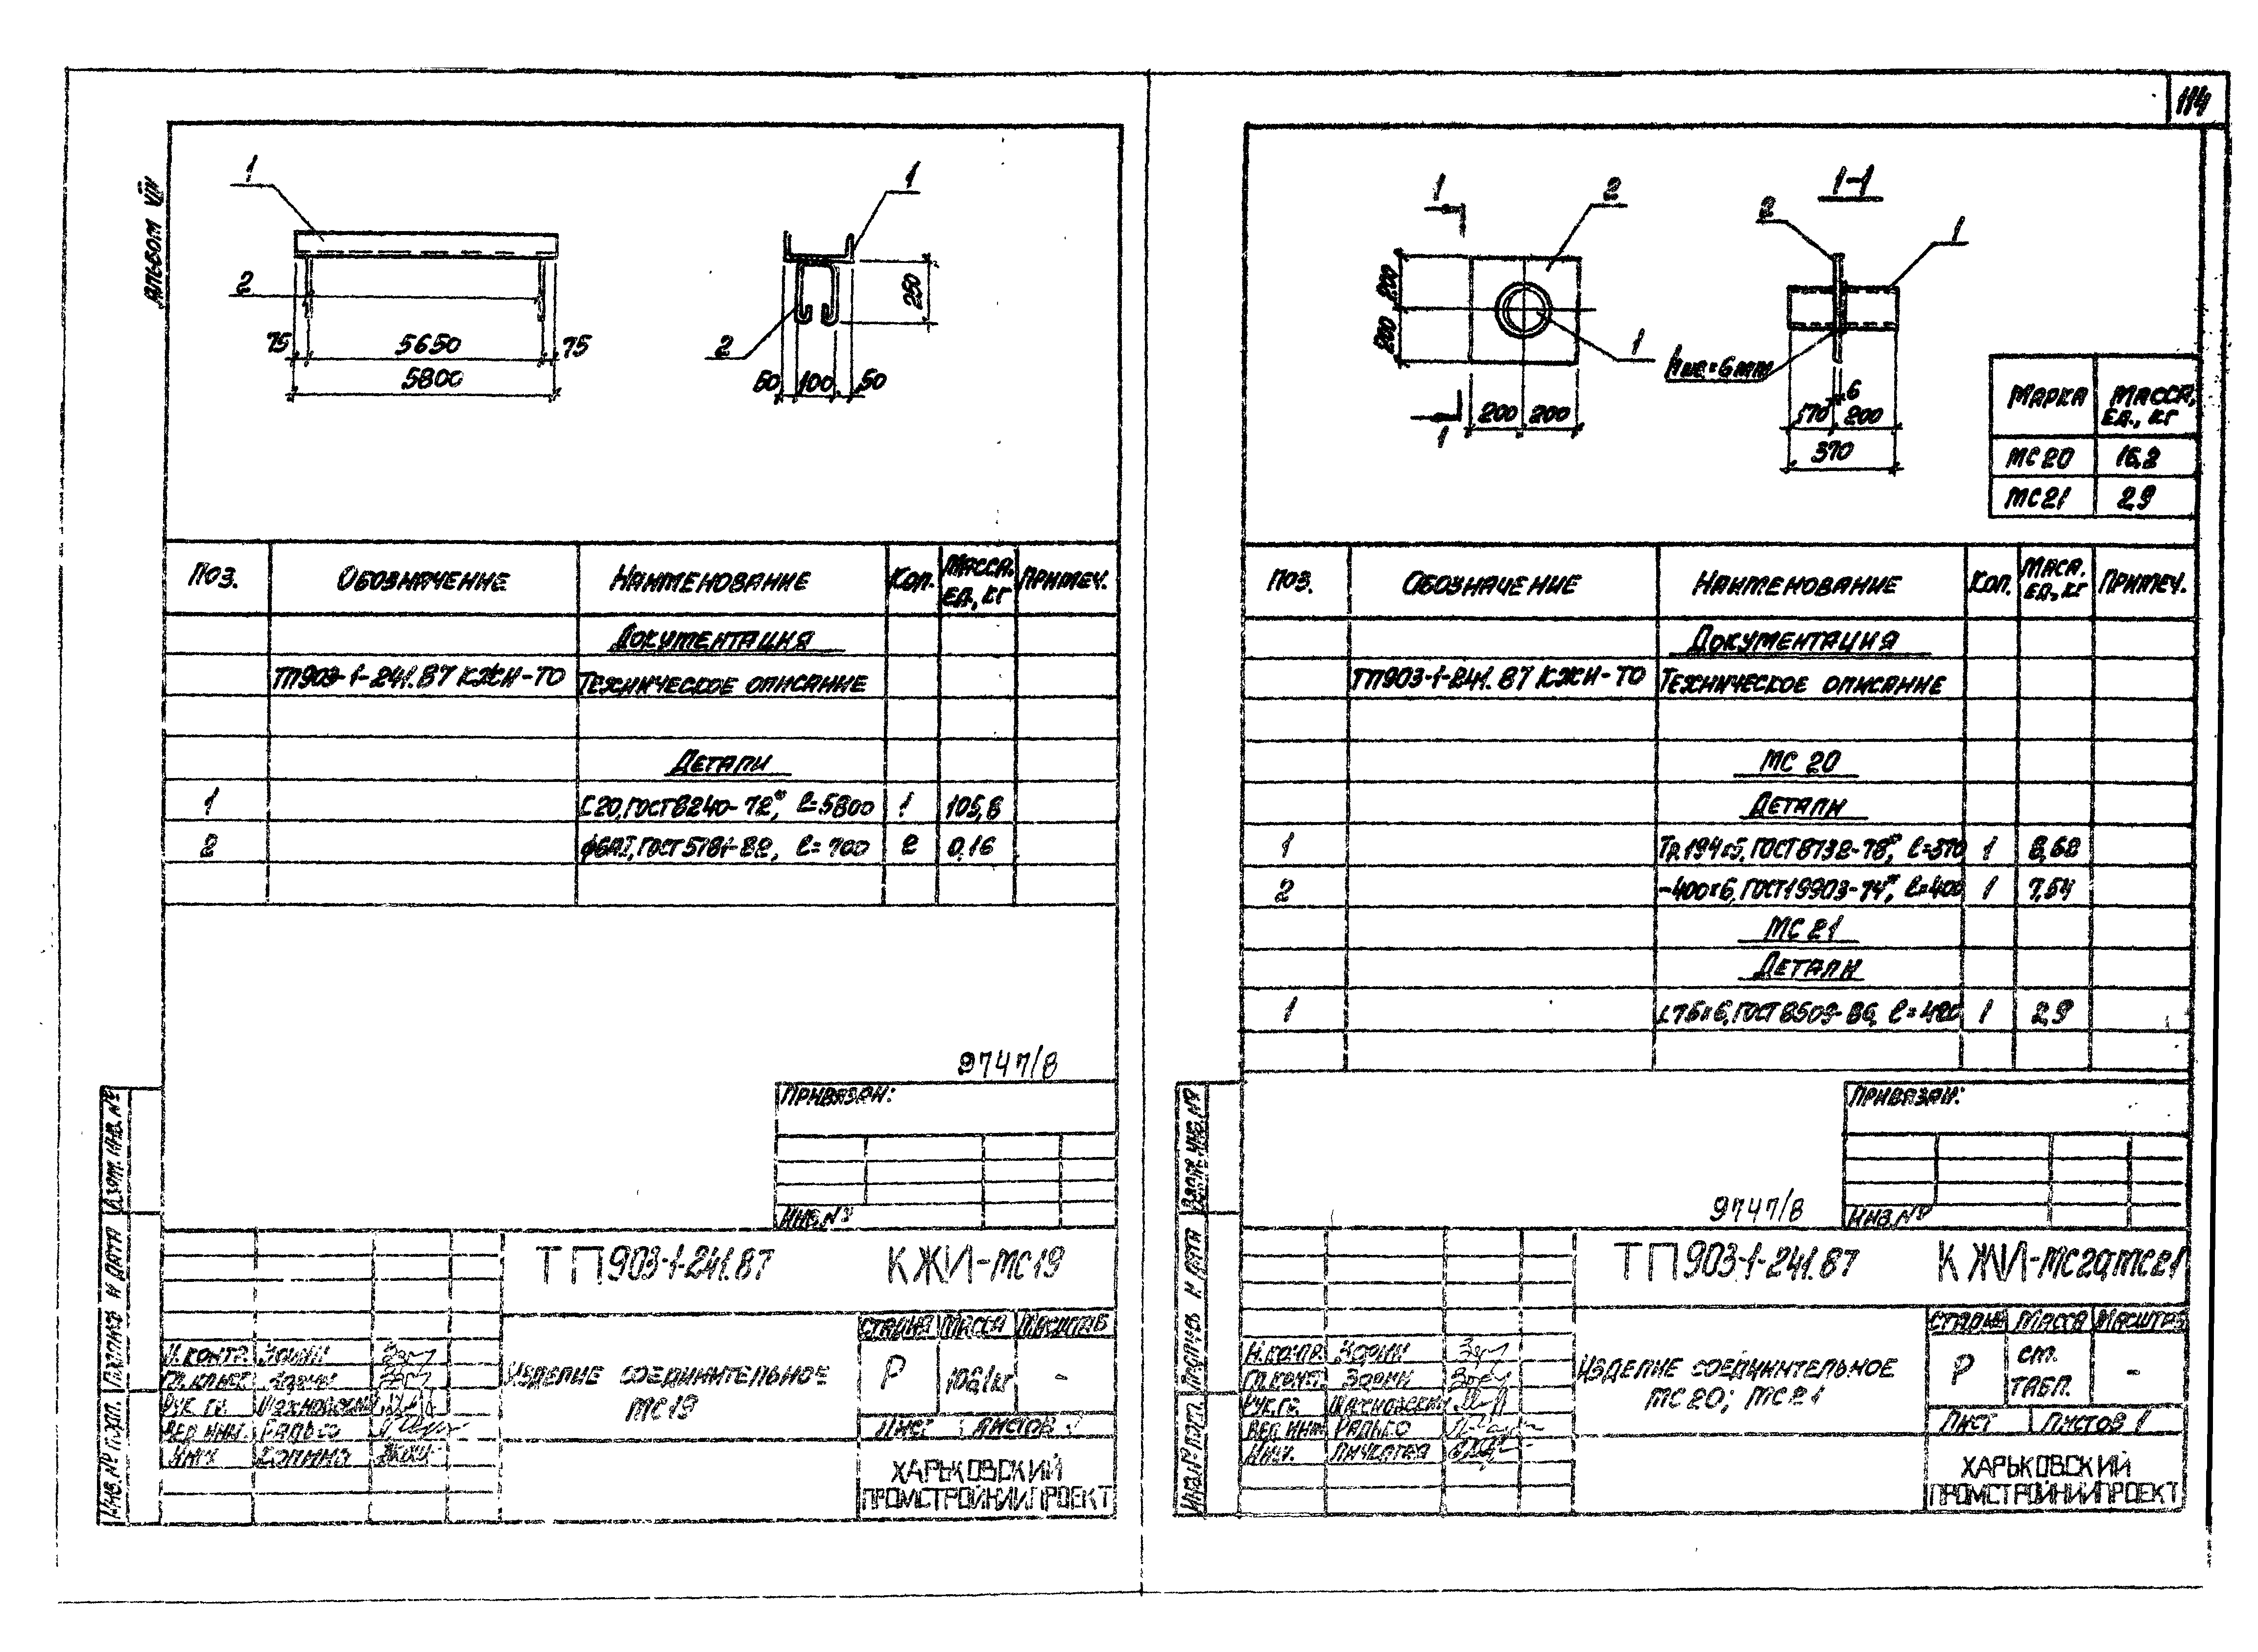 114
Альбом VIII
1
1
2
2
75
5650
75
5800
250
50
100
50
Поз.
Обозначение
Наименование
Кол.
Масса ед., кг
Примеч.
Документация
ТП903-1-241.87 КЖИ-ТО
Техническое описание
Детали
1
С20, ГОСТ 8240-72*, ℓ=5800
1
105,8
2
ф6АI, ГОСТ 5781-82, ℓ=700
2
0,16
9747/8
Привязан:
Инв.№
ТП903-1-241.87
КЖИ-МС19
Стадия
Масса
Масштаб
Р
106,1 кг
-
Изделие соединительное
МС19
Лист
Листов 1
Н.контр.
Рук.гр.
Вед.инж.
Радько
Инж.
Харьковский
ПромстройНИИпроект
Взам. инв.№
Подпись и дата
Инв.№ подл.
1
2
1
1
200
200
200
200
1-1
2
1
hшв=6мм
6
170
200
370
Марка
Масса, ед., кг
МС20
16,2
МС21
2,9
Поз.
Обозначение
Наименование
Кол.
Маса. ед., кг
Примеч.
Документация
ТП903-1-241.87 КЖИ-ТО
Техническое описание
МС 20
Детали
1
Тр.194х5, ГОСТ 8732-78*, ℓ=370
1
8,62
2
-400х6, ГОСТ 19903-74*, ℓ=400
1
7,54
МС 21
Детали
1
∟75х6, ГОСТ 8509-86, ℓ=420
1
2,9
9747/8
Привязан:
Инв.№
ТП903-1-241.87
КЖИ-МС20,МС21
Стадия
Масса
Масштаб
Р
см. табл.
-
Изделие соединительное
МС20; МС21
Лист
Листов 1
Н.контр.
Рук.гр.
Вед.инж.
Радько
Инж.
Харьковский
ПромстройНИИпроект
Взам. инв.№
Подпись и дата
Инв.№ подл.